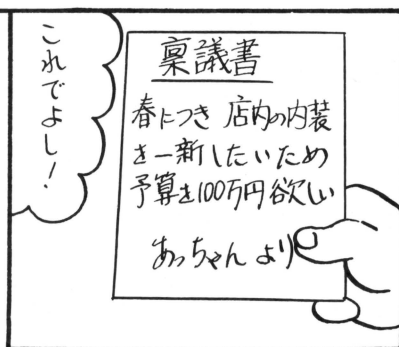 これでよし!
稟議書
春につき 店内の内装
を一新したいため
予算を100万円欲しい
あっちゃん より